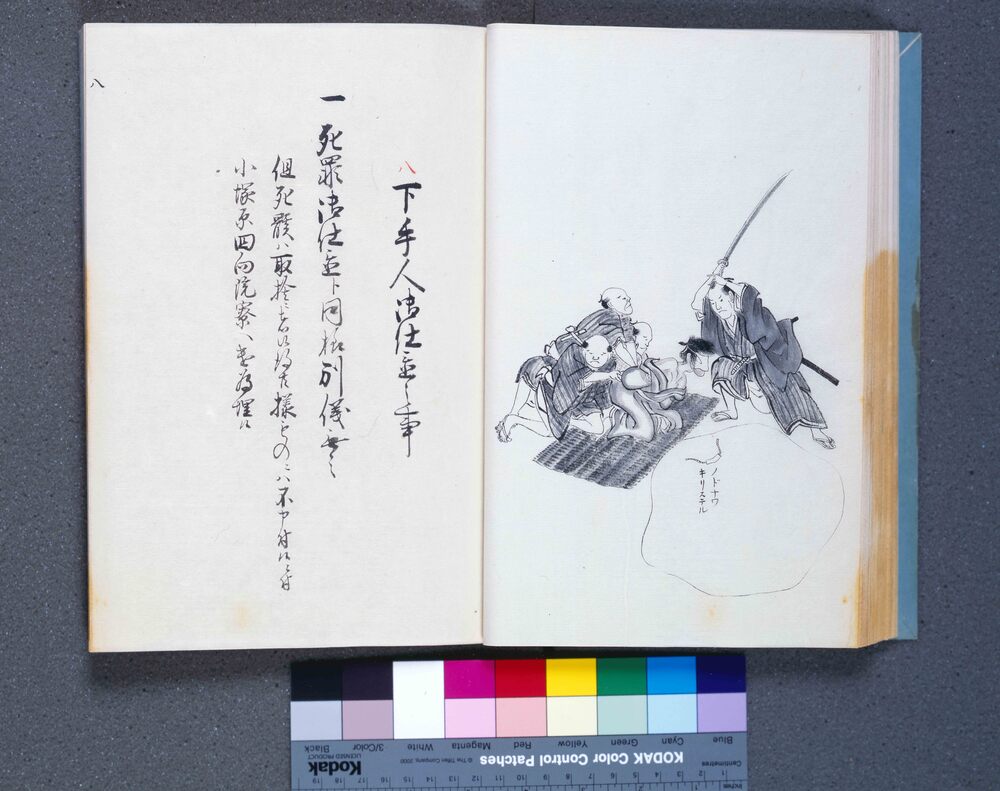 ノドナワ
キリステル
八
下手人御仕置之事
一 死罪御仕置ト同様別儀無之
但死骸ハ取捨ニ
様もの二ハ不申付候ニ付
小塚原回向院寮ハ
埋候
八
Blue
Cyan
Green
Yellow
Red
Magenta
White
3/Color
Black
KODAK Color Control Patches
© The Tiffen Company, 2000
Kodak
LICENSED PRODUCT
Centimetres
Inches
1 2 3 4 5 6 7 8 9 10 11 12 13 14 15 16 17 18 19